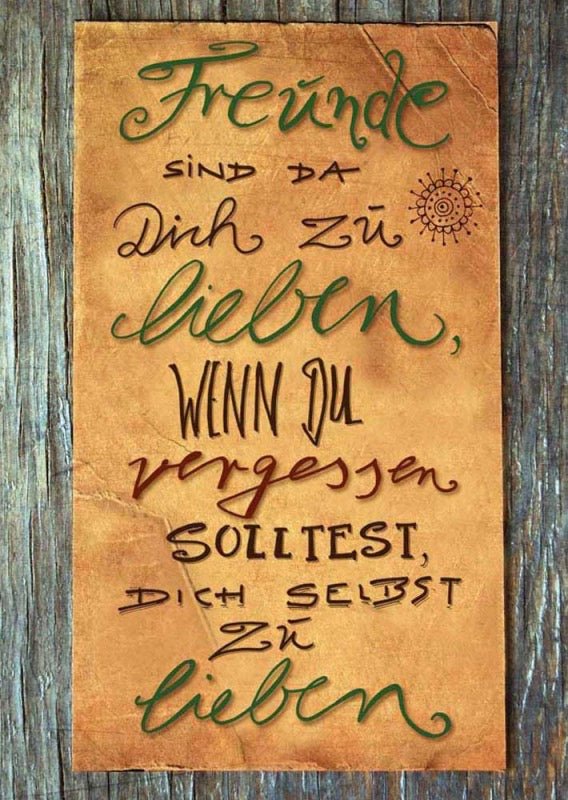 Freunde
SIND DA
Dich zu
lieben,
WENN DU
vergessen
SOLLTEST,
DICH SELBST
ZU
lieben